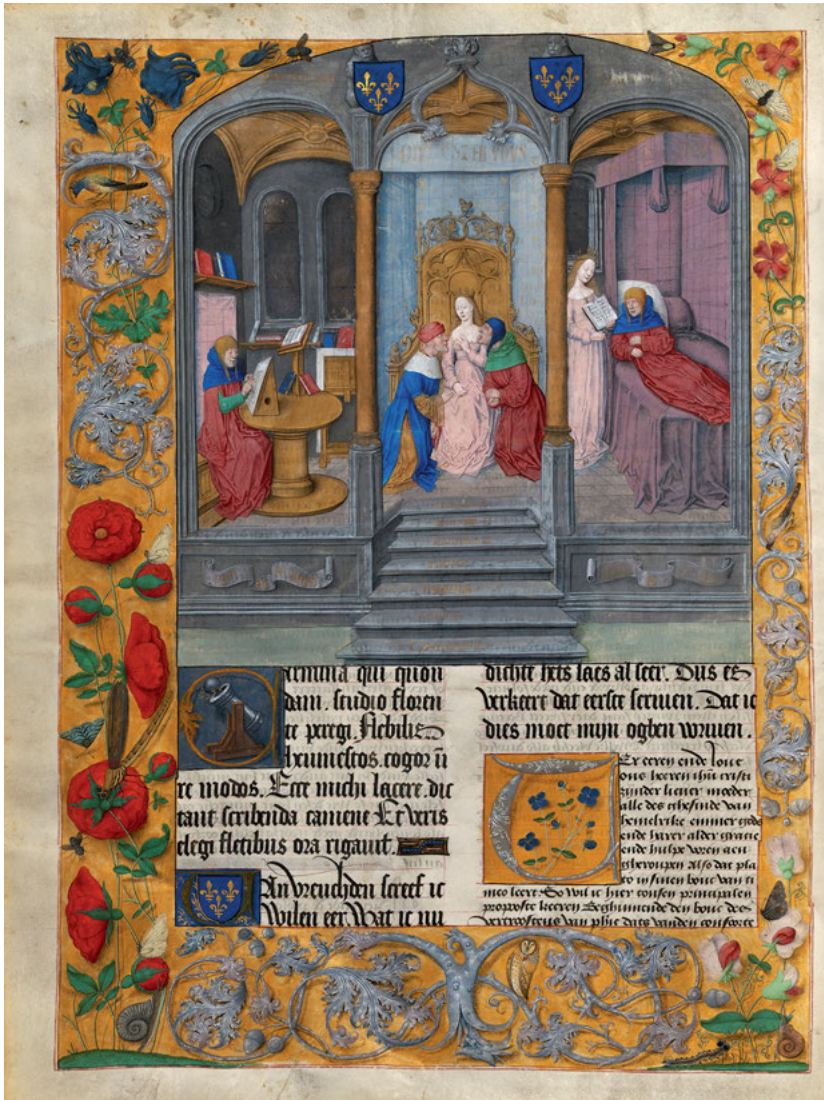 Carmina qui quon
dam. studio floren
te peregi. Flebilis
heu mestos. cogor in̄
re modos. Ecce michi lacere. dic
tant scribenda camene Et veris
elegi fletibus ora rigant.
Van vreuchden screef ic
Wilen eer. Wat ic nu
dichte hets laes al seer. Dus es
verkeert dat eerste scriuen. Dat ic
dies moet mijn oghen wriuen.
Ter eeren ende loue
ons heeren ihu cristi
zijnder lieuer moeder
alle des ghesinde van
hemelrike emmer gods
ende harer alder gracie
ende hulpe voren aen
gheroupen Also dat pla
to in sinen bouc van ti
meo leert. So wil ic hier tonsen principalen
propooste keeren Beghinnende den bouc des
vertroostens van phie dats vanden conforte